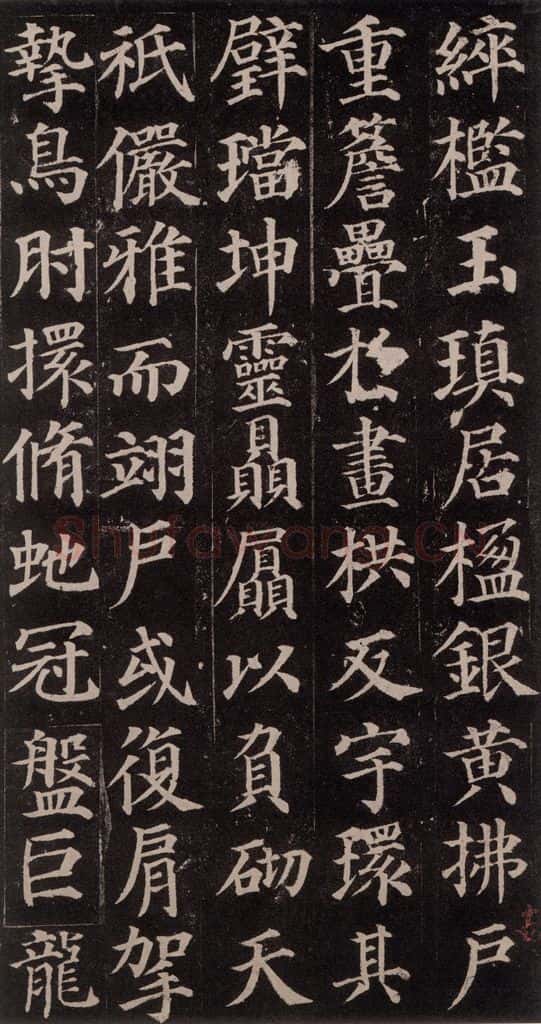 綷檻玉瑱居楹銀黄拂戶
重簷疊扵畫栱反宇環其
璧璫坤靈贔屭以負砌天
祇儼雅而翊戶或復肩挐
摯鳥肘擐脩虵冠盤巨龍
Shufawang.CN